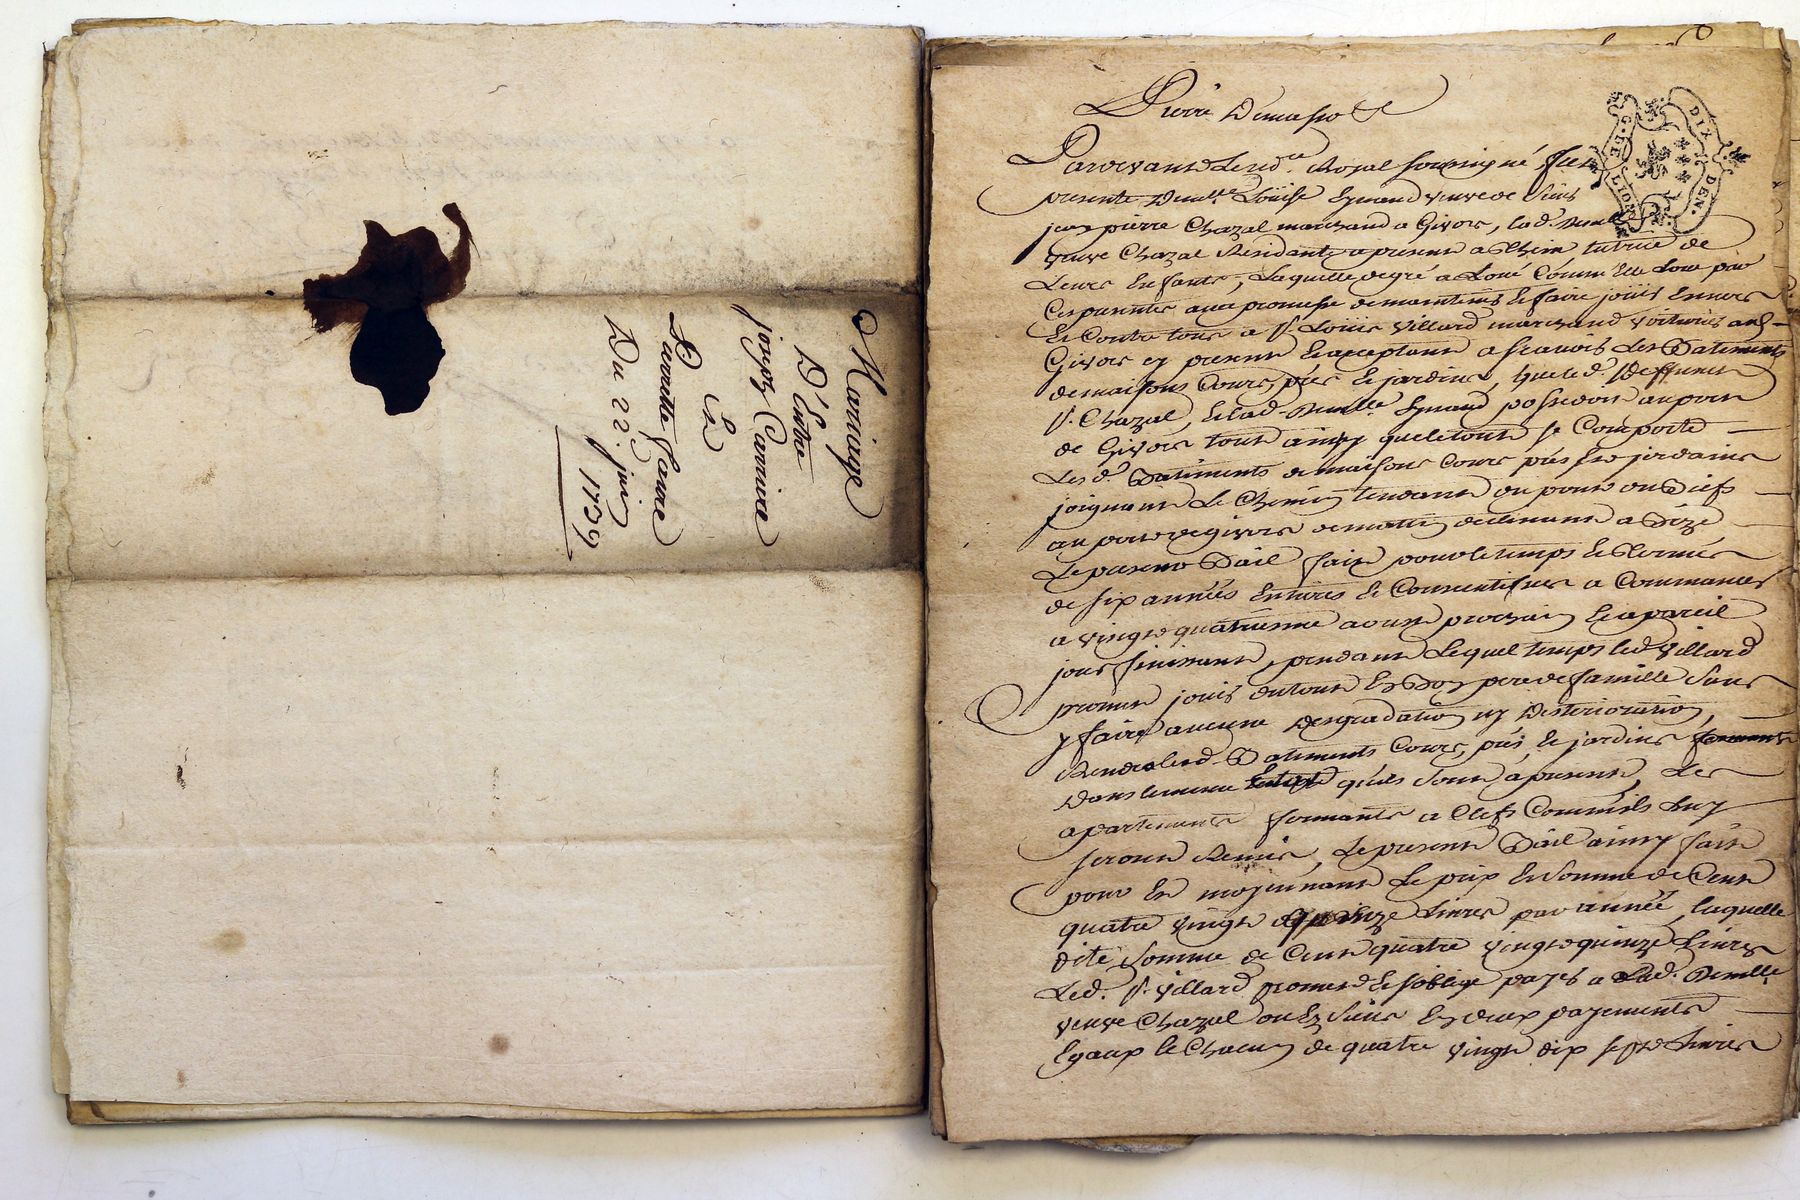 Mariage
D'Entre
joseph Carriere
Et
Pierrette Favre
Du 22. juin 1739
G. DE LION
DIX DEN.
Pardevant Le no.re Royal soussigné fut
presente Dem.lle Loüise Eynaud veuve de Sieur
jean pierre Chazal marchand a Givors, lad. Demlle
veuve Chazal Residante a present a tutrice de
Leurs Enfants, Laquelle de gré a Loué Comme Elle Loue par
Ces presentes avec promesse de maintenir Et faire joüir Envers
Et Contre tous a Sr. Loüis Villard marchand voiturier aud.
Givors icy present Et acceptant a scavoir Les Batiments
de maisons Cours, prés Et jardins, que led. deffunct
Sr. Chazal, Et lad. Demlle Eynaud possedoit au port
de Givors tout ainsy que le tout se Comporte
Lesd. Batiments de maisons Cours prés Et jardins
joignant Le Chemin tendant du
au port de Givors de matin
Le present Bail fait pour le temps Et Termes
de six années Entieres Et Consecutives a Commancer
a vingt quatrieme aoust prochain Et a pareil
jour finissant, pendant Lequel temps led. Villard
promet joüir du tout En Bon pere de famille Sans
y faire aucune degradation ny Deterioration,
Rendra lesd. Batiments Cours, prés, Et jardins
Dans le meme Estat qu'ils sont a present, Les
apartements fermants a Clefs Comm'ils luy
seront Remis, Le present Bail ainsy fait
pour Et moyennant Le prix Et Somme de Cent
quatre vingt quinze Livres par année, laquelle
dite Somme de Cent quatre vingt quinze Livres
Led. Sr. Villard promet Et s'oblige payer a Lad. Demlle
veuve Chazal ou Es Siens En deux payements
Egaux le Chacun de quatre vingt dix sept Livres